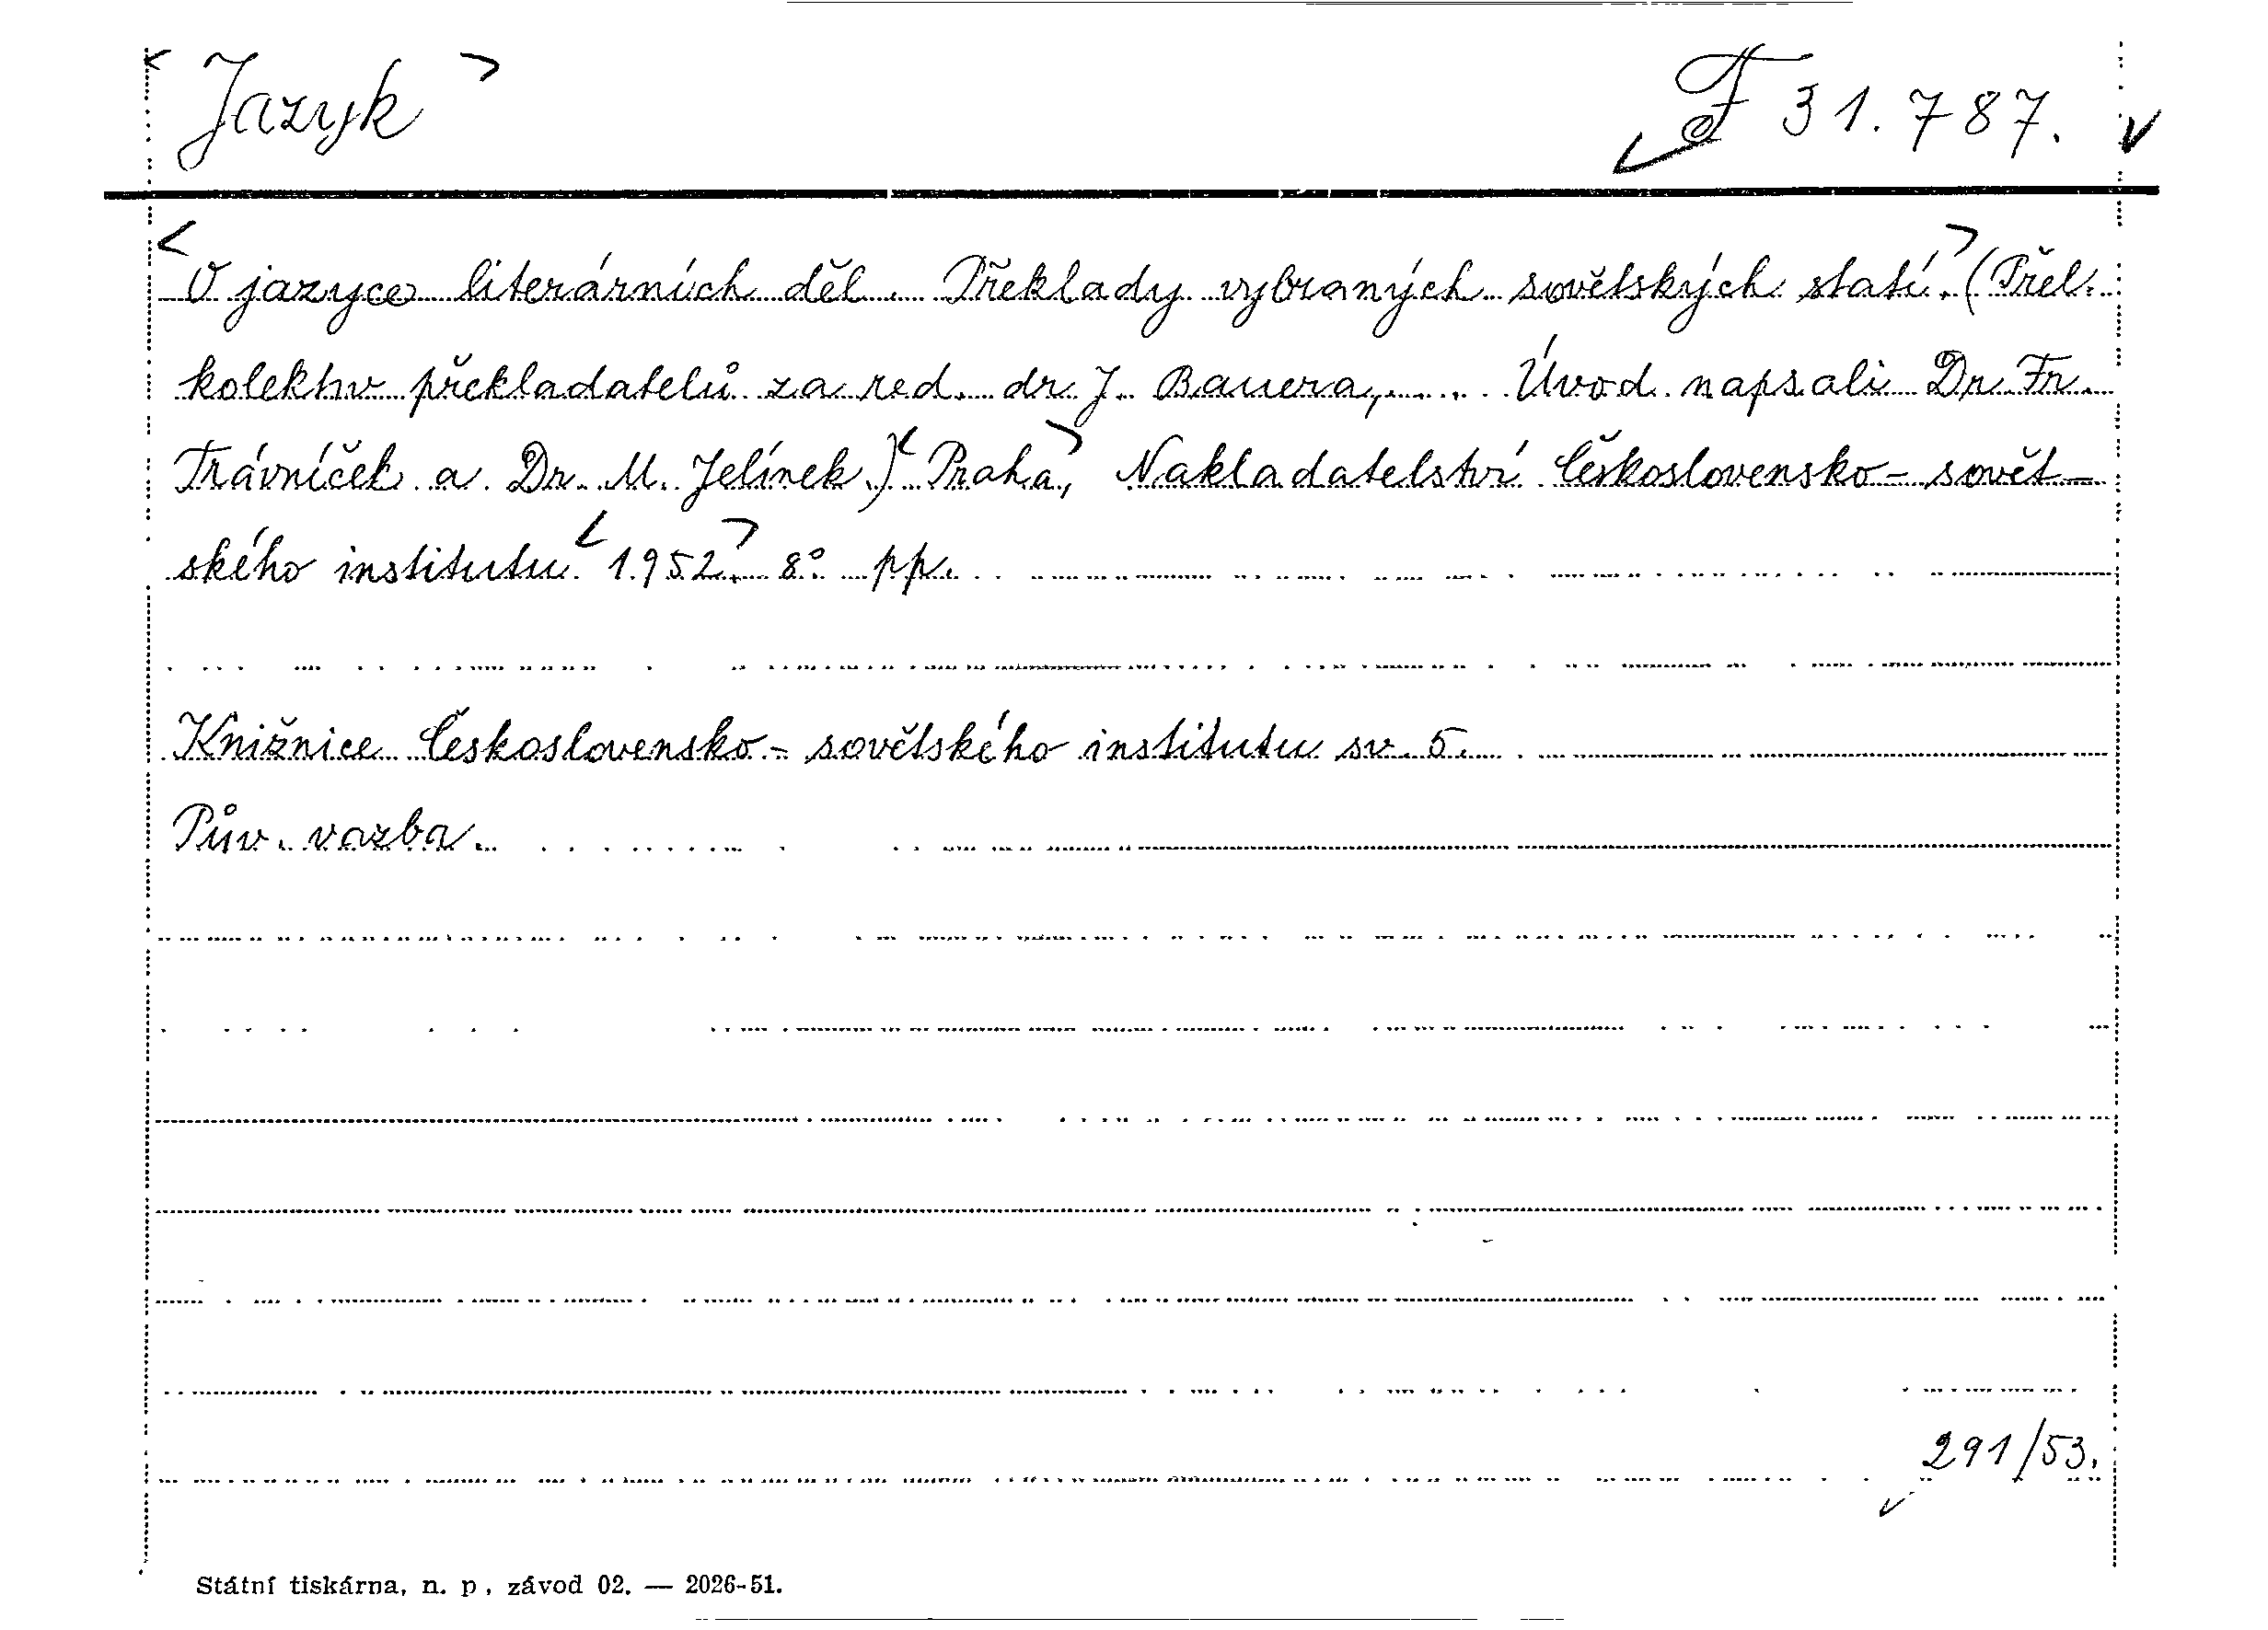 Jazyk
F 31.787.
O jazyce literárních děl. Překlady vybraných sovětských statí. (Přel.
kolektiv překladatelů za red. dr J. Bauera, ... Úvod napsali Dr. Fr.
Trávníček a Dr. M. Jelínek.) Praha, Nakladatelství Československo-sovět-
ského institutu 1952. 8° pp.
Knižnice Československo-sovětského institutu sv. 5.
Pův. vazba.
291/53.
Státní tiskárna, n. p., závod 02. — 2026-51.